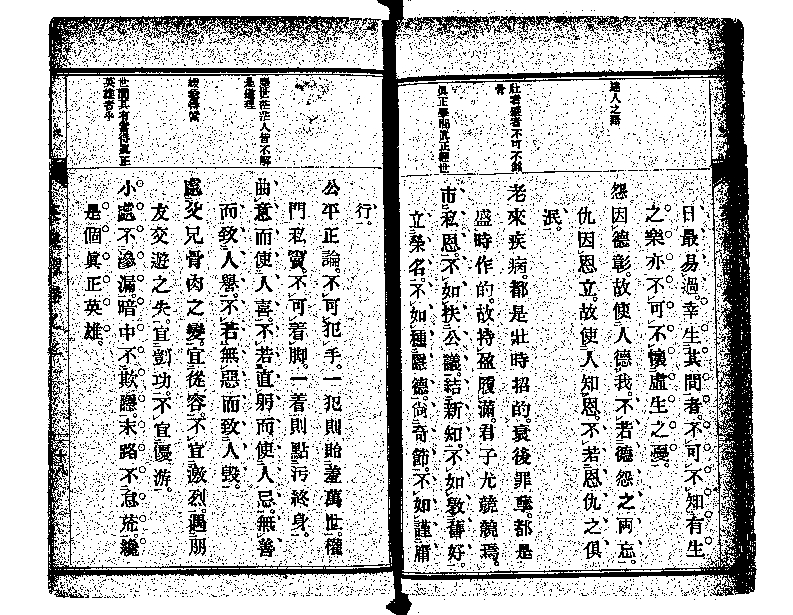 達人之路
壯者盛者不可不銘
骨
真正學問真正經世
日最易過。幸生其間者。不可不知有生
之樂。亦不可不懷虛生之憂。
怨因德彰。故使人德我。不若德怨之兩忘。
仇因恩立。故使人知恩。不若恩仇之俱
泯。
老來疾病。都是壯時招的。衰後罪孽。都是
盛時作的。故持盈履滿。君子尤兢兢焉。
市私恩。不如扶公議。結新知。不如敦舊好。
立榮名。不如種隱德。尚奇節。不如謹庸
是處理
世間具有當得眞正
英雄者乎
行。
公平正論。不可犯手。一犯則貽羞萬世。權
門私竇。不可着脚。一着則點污終身。
曲意而使人喜。不若直躬而使人忌。無善
而致人譽。不若無惡而致人毀。
處父兄骨肉之變。宜從容不宜激烈。遇朋
友交遊之失。宜剴切。不宜優游。
小處不滲漏。暗中不欺隱。末路不怠荒。纔
是個眞正英雄。